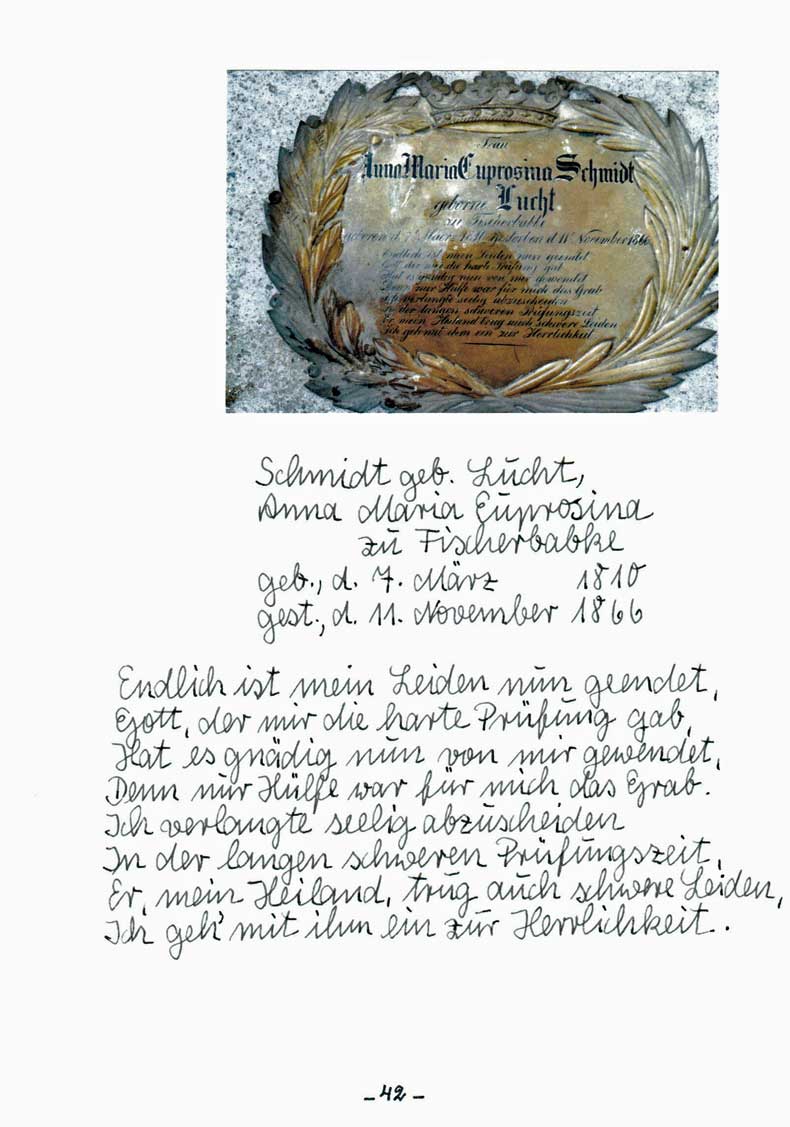 Frau
Anna Maria Euprosina Schmidt
geborne Lucht
zu Fischerbabke
geboren d. 7 März gestorben d. 11 November 1866
Endlich ist mein Leiden nun geendet
Gott der mir die harte Prüfung gab
Hat es gnädig nun von mir gewendet
Denn nur Hülfe war für mich das Grab
Ich verlangte seelig abzuscheiden
In der langen schweren Prüfungszeit
Er mein Heiland trug auch schwere Leiden
Ich geh mit ein zur Herrlichkeit
Schmidt geb. Lucht,
Anna Maria Euprosina
zu Fischerbabke
geb., d. 7. März 1810
gest., d. 11. November 1866
Endlich ist mein Leiden nun geendet,
Gott, der mir die harte Prüfung gab,
Hat es gnädig nun von mir gewendet,
Denn nur Hülfe war für mich das Grab.
Ich verlangte seelig abzuscheiden
In der langen schweren Prüfungszeit,
Er, mein Heiland, trug auch schwere Leiden,
Ich geh' mit ihm ein zur Herrlichkeit.
- 42 -